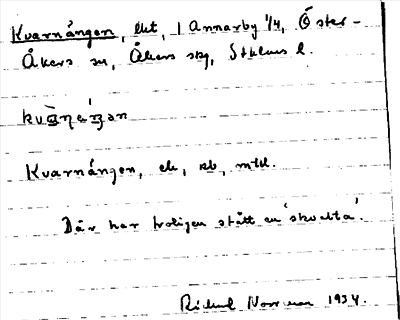 Kvarnången, lht, 1 Annarby 1/4, Öster-
Åkers sn, Åkers skg, Sthlms l.
Kvarnången, ek, sb, mtd.
Där har troligen stått en 'skvalta'.
Rickard Norrman 1934.